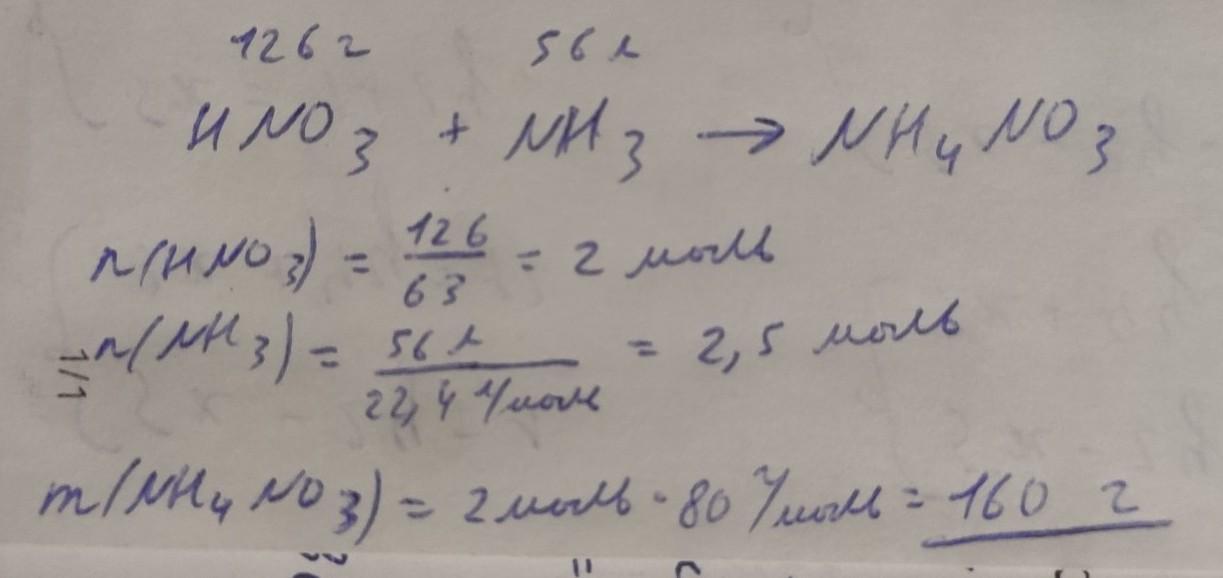 126 г 56 л
HNO3 + NH3 → NH4NO3
n(HNO3) = 126/63 = 2 моль
n(NH3) = 56 л/22,4 л/моль = 2,5 моль
1/1
m(NH4NO3) = 2 моль · 80 г/моль = 160 г